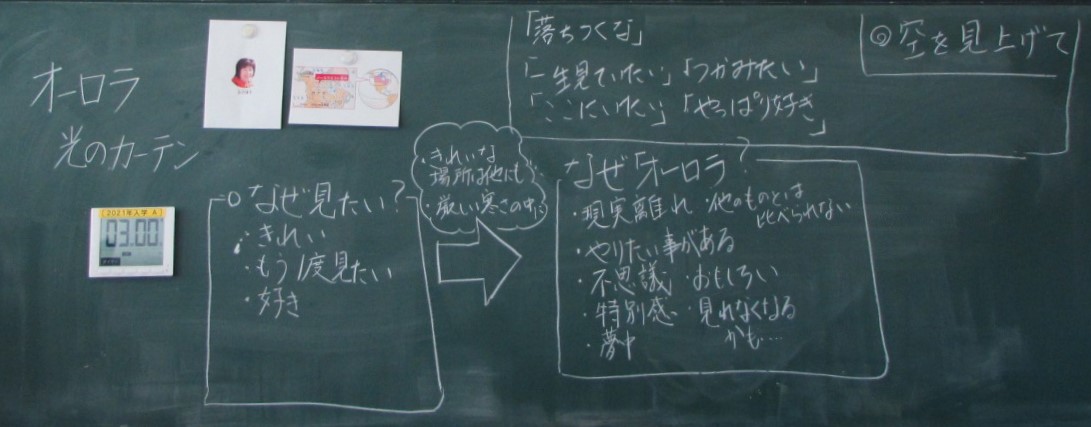 オーロラ
光のカーテン
2021年入学 A
03.00
なぜ見たい?
・きれい
・もう1度見たい
・好き
・きれいな
場所は他にも…
・厳しい寒さの中に
「落ちつくな」
「一生見ていたい」「つかみたい」
「ここにいたい」「やっぱり好き」
◎空を見上げて
なぜ「オーロラ?
・現実離れ ・他のものとは
比べられない
・やりたい事がある
・不思議 ・おもしろい
・特別感 ・見れなくなる
かも….
・夢中